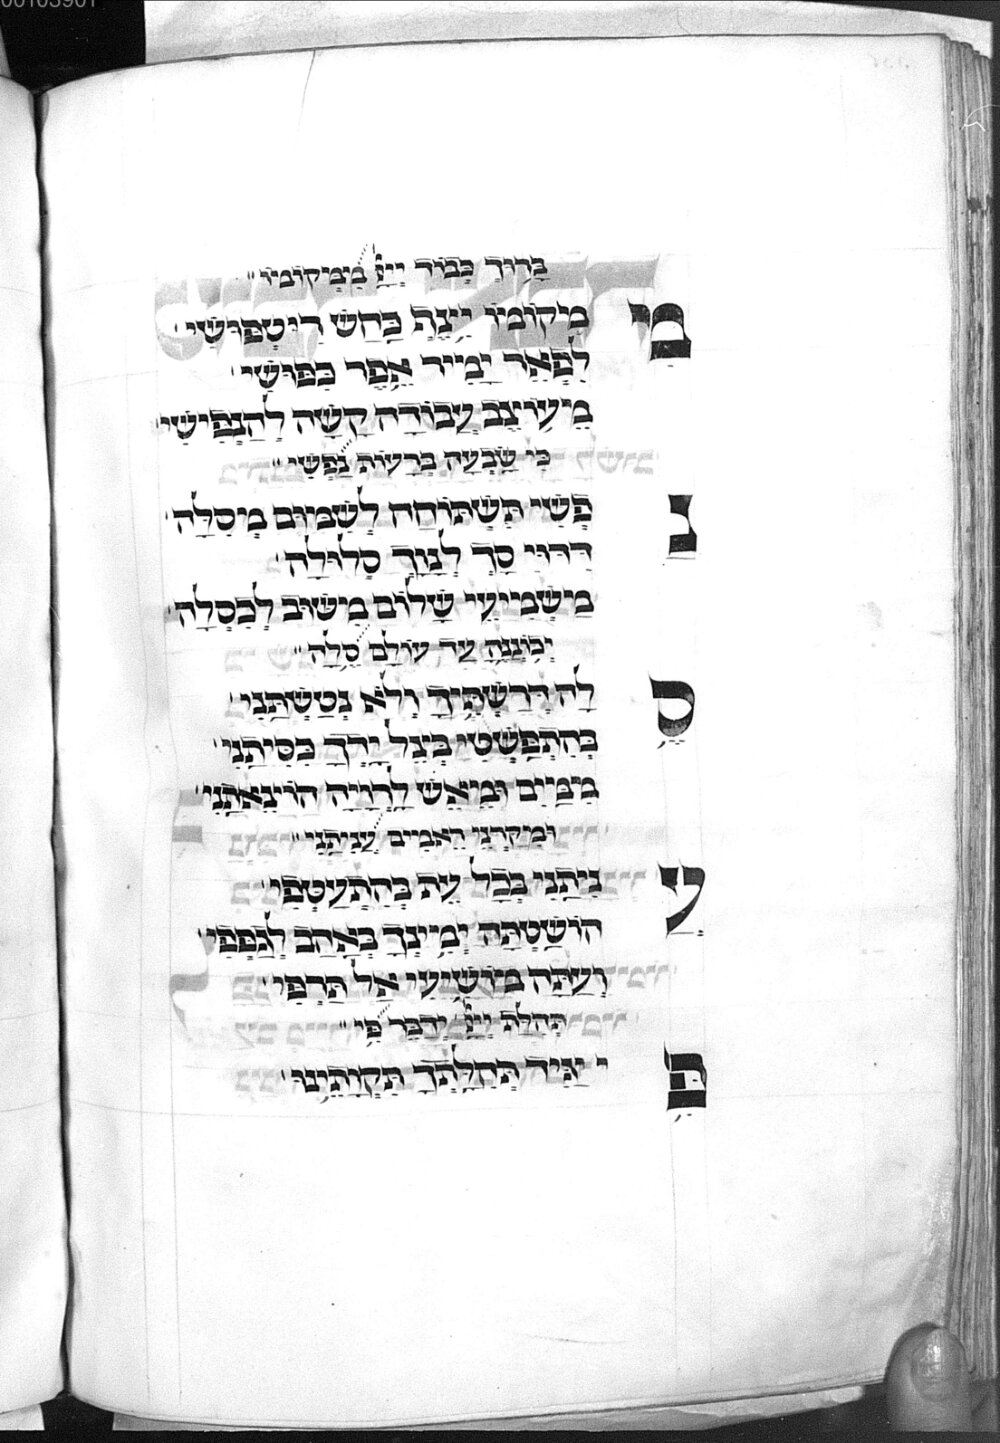 בָּרוּךְ כְּבוֹד יְיָ מִמְּקוֹמוֹ
מ מִיקוֹמוֹ יָצָתָ בַּחַשׁ רִיטְפוּשִׁי
לְפָאֵר יָמִיר אֵפֶר כְּפוּשִׁי
מֵעוֹצֶב עֲבוֹדָה קָשָׁה לְהַנְפִּישִׁי
כִּי שָׂבְעָה בְרָעוֹת נַפְשִׁי
נ פְשִׁי תִּשְׁתּוֹחַח לְשַׁמּוּם מְסִלָּה
דִּרְוִי סָךְ לְנַוָךְ סְלוּלָה
מַשְׁמִיעֵי שָׁלוֹם מִשּׁוּב לְכִסְלָה
יְכוֹנְנֶהָ עַד עוֹלָם סֶלָה
ס לָה דְּרַשְׁתִּיךָ וְלֹא נְטַשְׁתַּנִי
בְּהִתְפַּשְּׁטִי בְּצֵל יָדְךָ כִּסִּיתַנִי
מִמַּיִם וּמֵאֵשׁ לָרְוָיָה הוֹצֵאתַנִי
וּמִקַּרְנֵי רֵאמִים עֲנִיתָנִי
עֲ נִיתַנִי בְּכָל עֵת בְּהִתְעַטְּפִי
הוֹשַׁטְתָּה יְמִינְךָ בְּאַהַב לְגַפְּפִי
וְעַתָּה מוֹשִׁיעִי אַל תִּרְפִּי
תְּהִלַּת יְיָ יְדַבֵּר פִּי
פִּ י יַגִּיד תְּהִלָּתְךָ תִּקְוָתֵינוּ